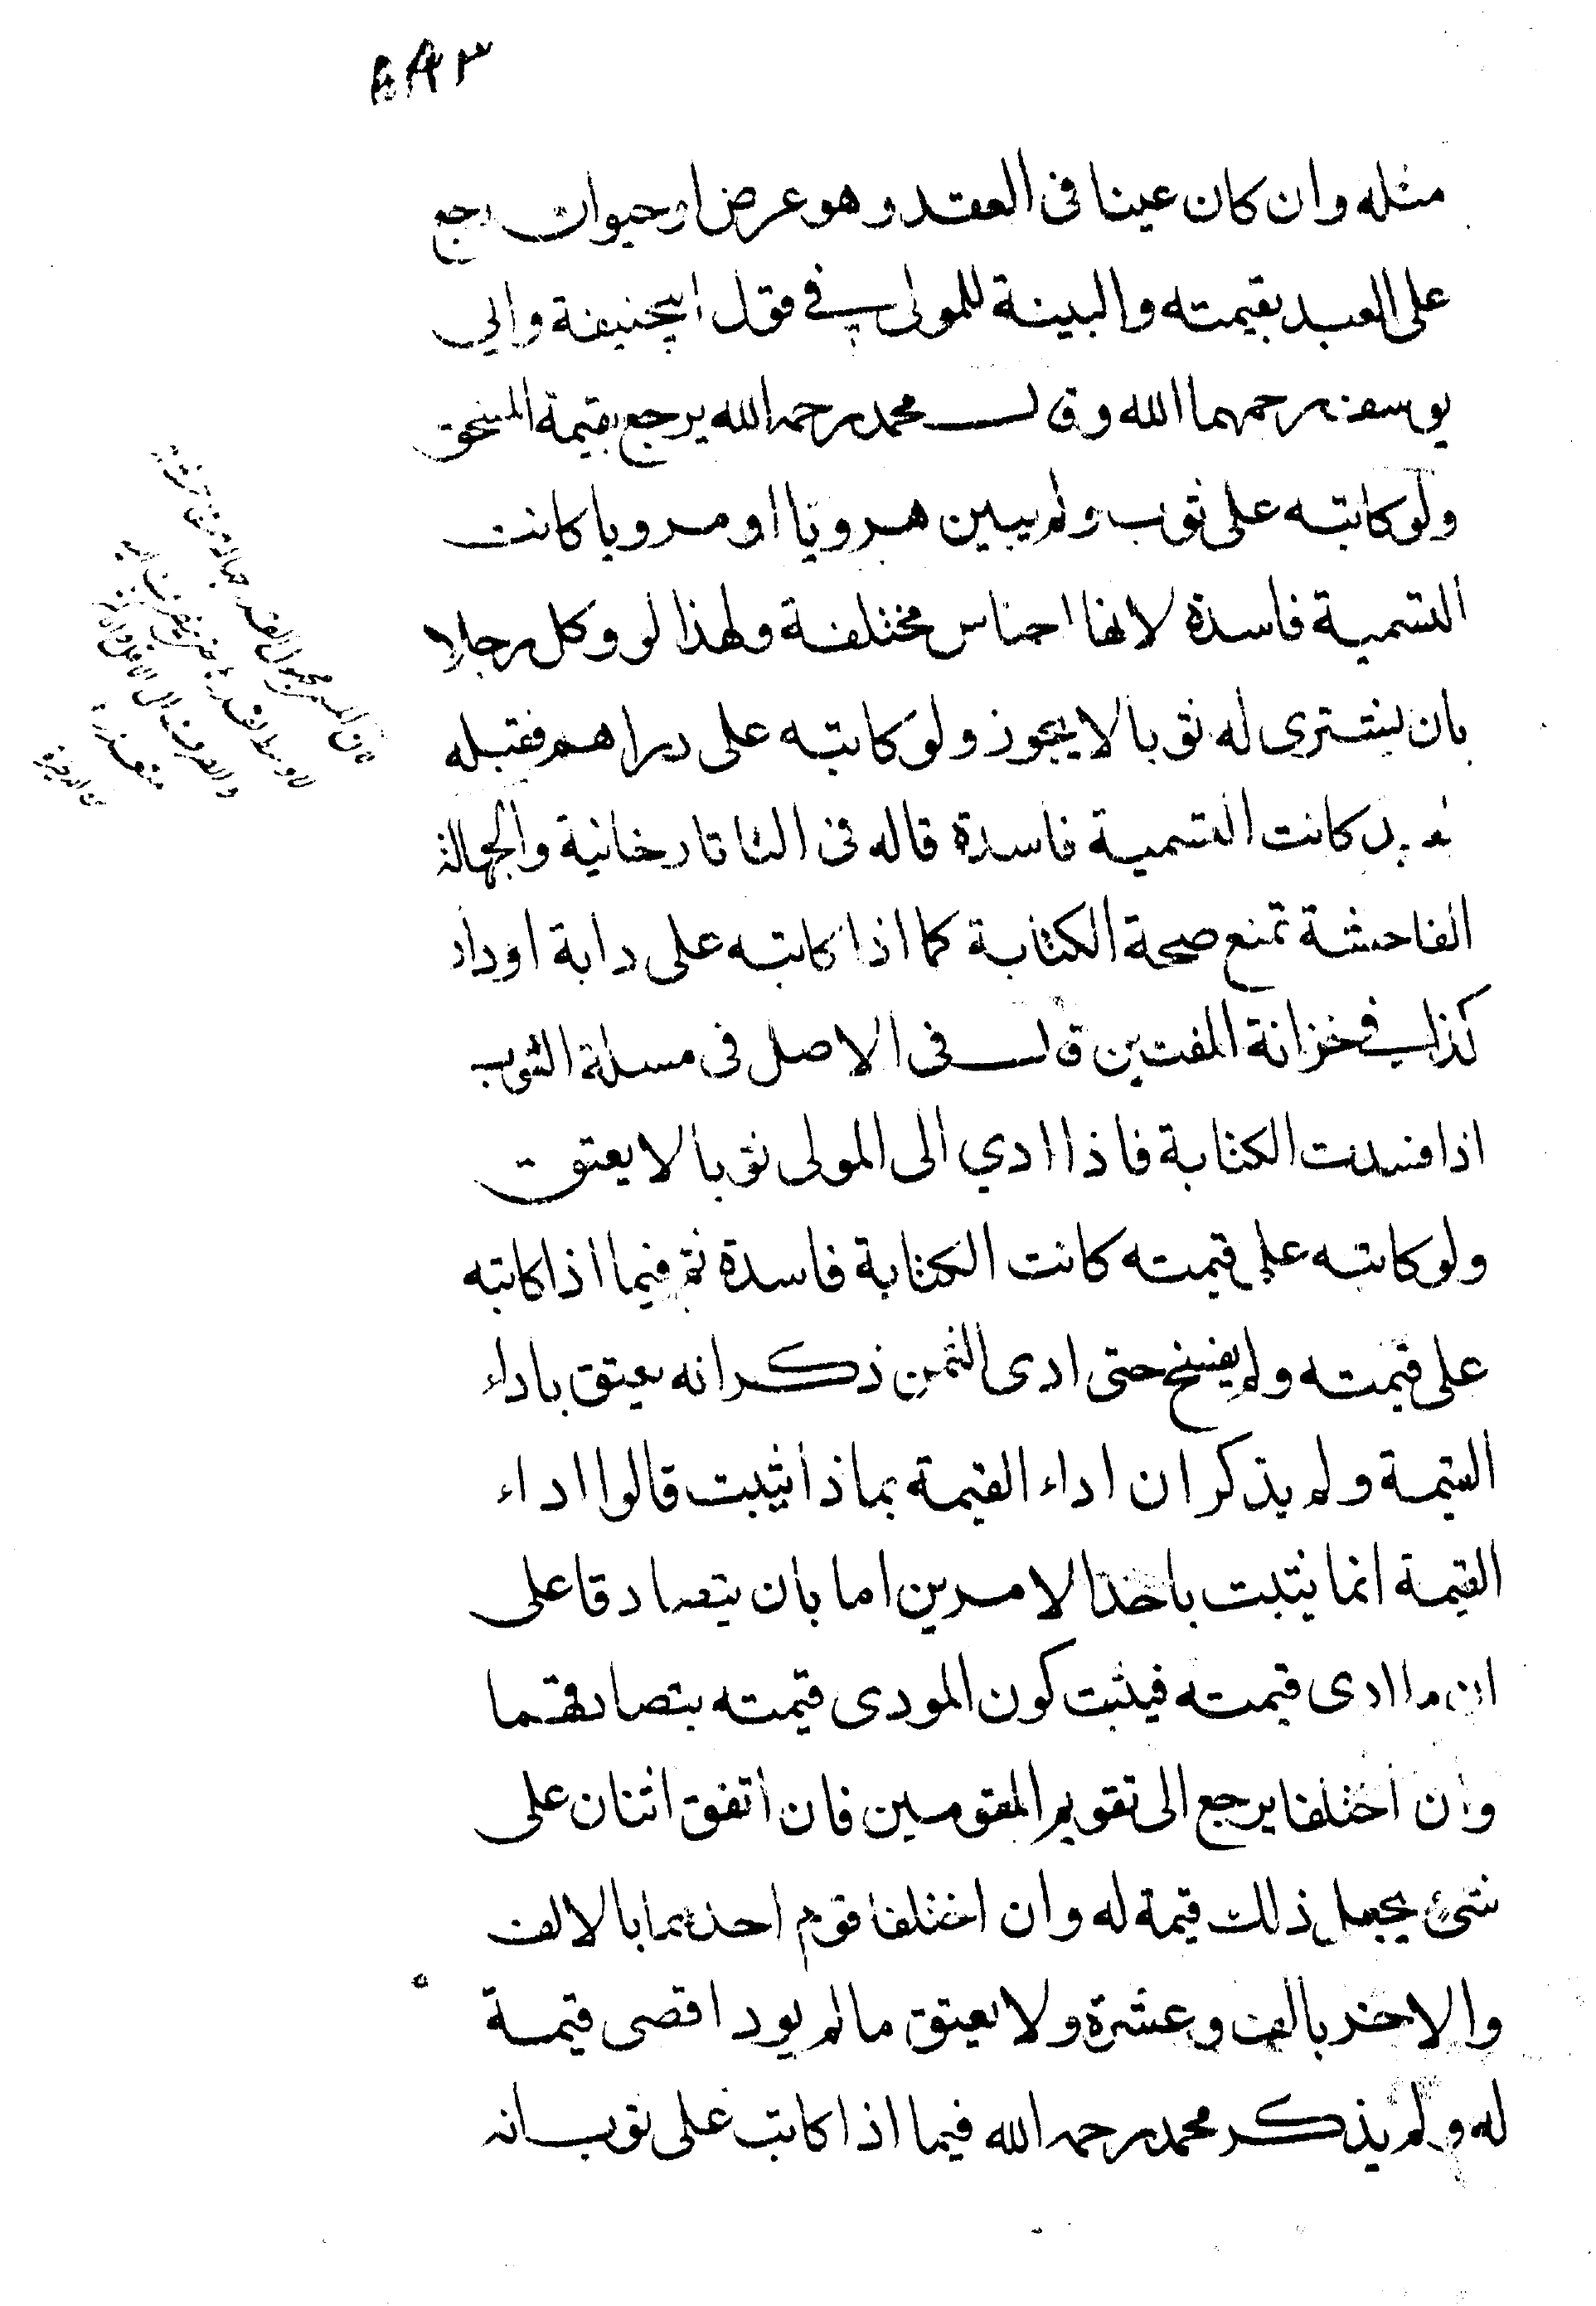 مثله وان كان عينا فى العقد وهو عرض او حيوان رجع
على العبد بقيمته والبينة للمولى في قول ابيحنيفة وابي
يوسف رحمهما الله وقال محمد رحمه الله يرجع بقيمة المستحق
ولو كاتبه على ثوب ولم يبين هرويا او مرويا كانت
التسمية فاسدة لانها اجناس مختلفة ولهذا لو وكل رجلا
بان يشترى له ثوبا لا يجوز ولو كاتبه على دراهم فقبله
كانت التسمية فاسدة قاله فى التاتارخانية والجهالة
الفاحشة تمنع صحة الكتابة كما اذا كاتبه على دابة او دار
كذا في خزانة المفتين قال فى الاصل فى مسلة الثوب
اذا فسدت الكتابة فاذا ادي الى المولى ثوبا لا يعتق
ولو كاتبه على قيمته كانت الكتابة فاسدة ثم فيما اذا كاتبه
على قيمته ولم يفسخ حتى ادى الثمن ذكر انه يعتق باداء
القيمة ولم يذكر ان اداء القيمة بماذا يثبت قالوا اداء
القيمة انما يثبت باحد الامرين اما بان يتصادقا على
ان ما ادى قيمته فيثبت كون المودى قيمته بتصادقهما
وان اختلفا يرجع الى تقويم المقومين فان اتفق اثنان على
شئ يجعل ذلك قيمة له وان اختلفا قوم احدهما بالالف
والاخر بالف وعشرة ولا يعتق مالم يود اقصى قيمة
له ولم يذكر محمد رحمه الله فيما اذا كاتب على ثوب انه